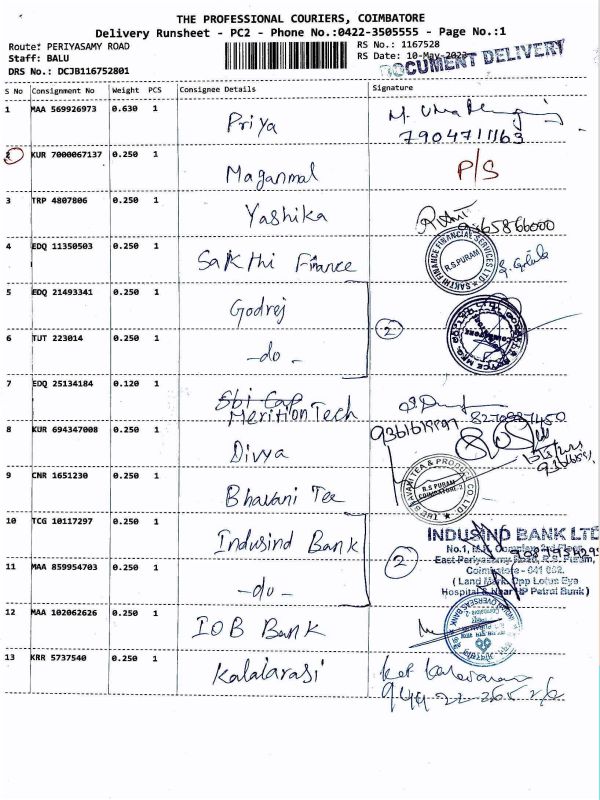 THE PROFESSIONAL COURIERS, COIMBATORE
Delivery Runsheet - PC2 - Phone No.:0422-3505555 - Page No.:1
Route: PERIYASAMY ROAD RS No.: 1167528
Staff: BALU RS Date: 10-May-2023
DOCUMENT DELIVERY
DRS No.: DCJB116752801
S No Consignment No Weight PCS Consignee Details Signature
1 MAA 569926973 0.630 1 Priya
7904711163
2 KUR 7000067137 0.250 1 Maganmal P/S
3 TRP 4807806 0.250 1 Yashika
9365866000
4 EDQ 11350503 0.250 1 Sakthi Finance
SAKTHI FINANCE FINANCIAL SERVICES LTD
R.S.PURAM
5 EDQ 21493341 0.250 1 Godrej
2
6 TUT 223014 0.250 1 -do-
7 EDQ 25134184 0.120 1 Sbi Cap
Merition Tech
8270987450
8 KUR 694347008 0.250 1 Divya
9 CNR 1651230 0.250 1 Bhavani Tea
R.S PURAM
COIMBATORE-2
10 TCG 10117297 0.250 1 Indusind Bank
INDUSIND BANK LTD
East Periyasamy Road, R.S. Puram,
Coimbatore - 641 002.
2
11 MAA 859954703 0.250 1 -do-
( Land Mark. Opp Lotus Eye
Hospital & Near HP Petrol Bunk )
12 MAA 102062626 0.250 1 IOB Bank
13 KRR 5737540 0.250 1 Kalaiarasi